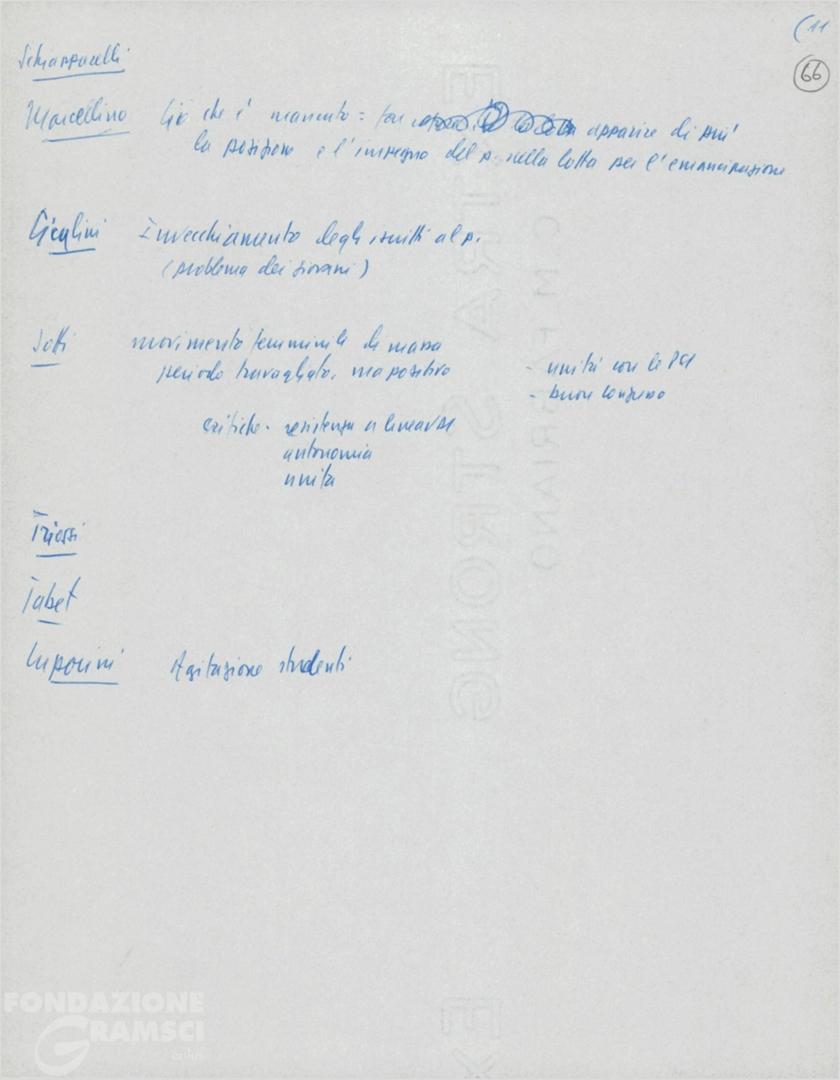 (11
66
Schiapparelli
Marcellino Ciò che è mancato = far apparire di più
la posizione e l'impegno del p. nella lotta per l'emancipazione
Cicalini Invecchiamento degli iscritti al p.
(problema dei giovani)
Jotti movimento femminile di massa
periodo travagliato, ma positivo
- unità con le PSI
- buon lavoro
critiche - resistenza a linea UDI
autonomia
unità
Triossi
Tabet
Luporini Agitazione studenti
EXTRA STRONG
C.M. FABRIANO
EX
FONDAZIONE
GRAMSCI
onlus